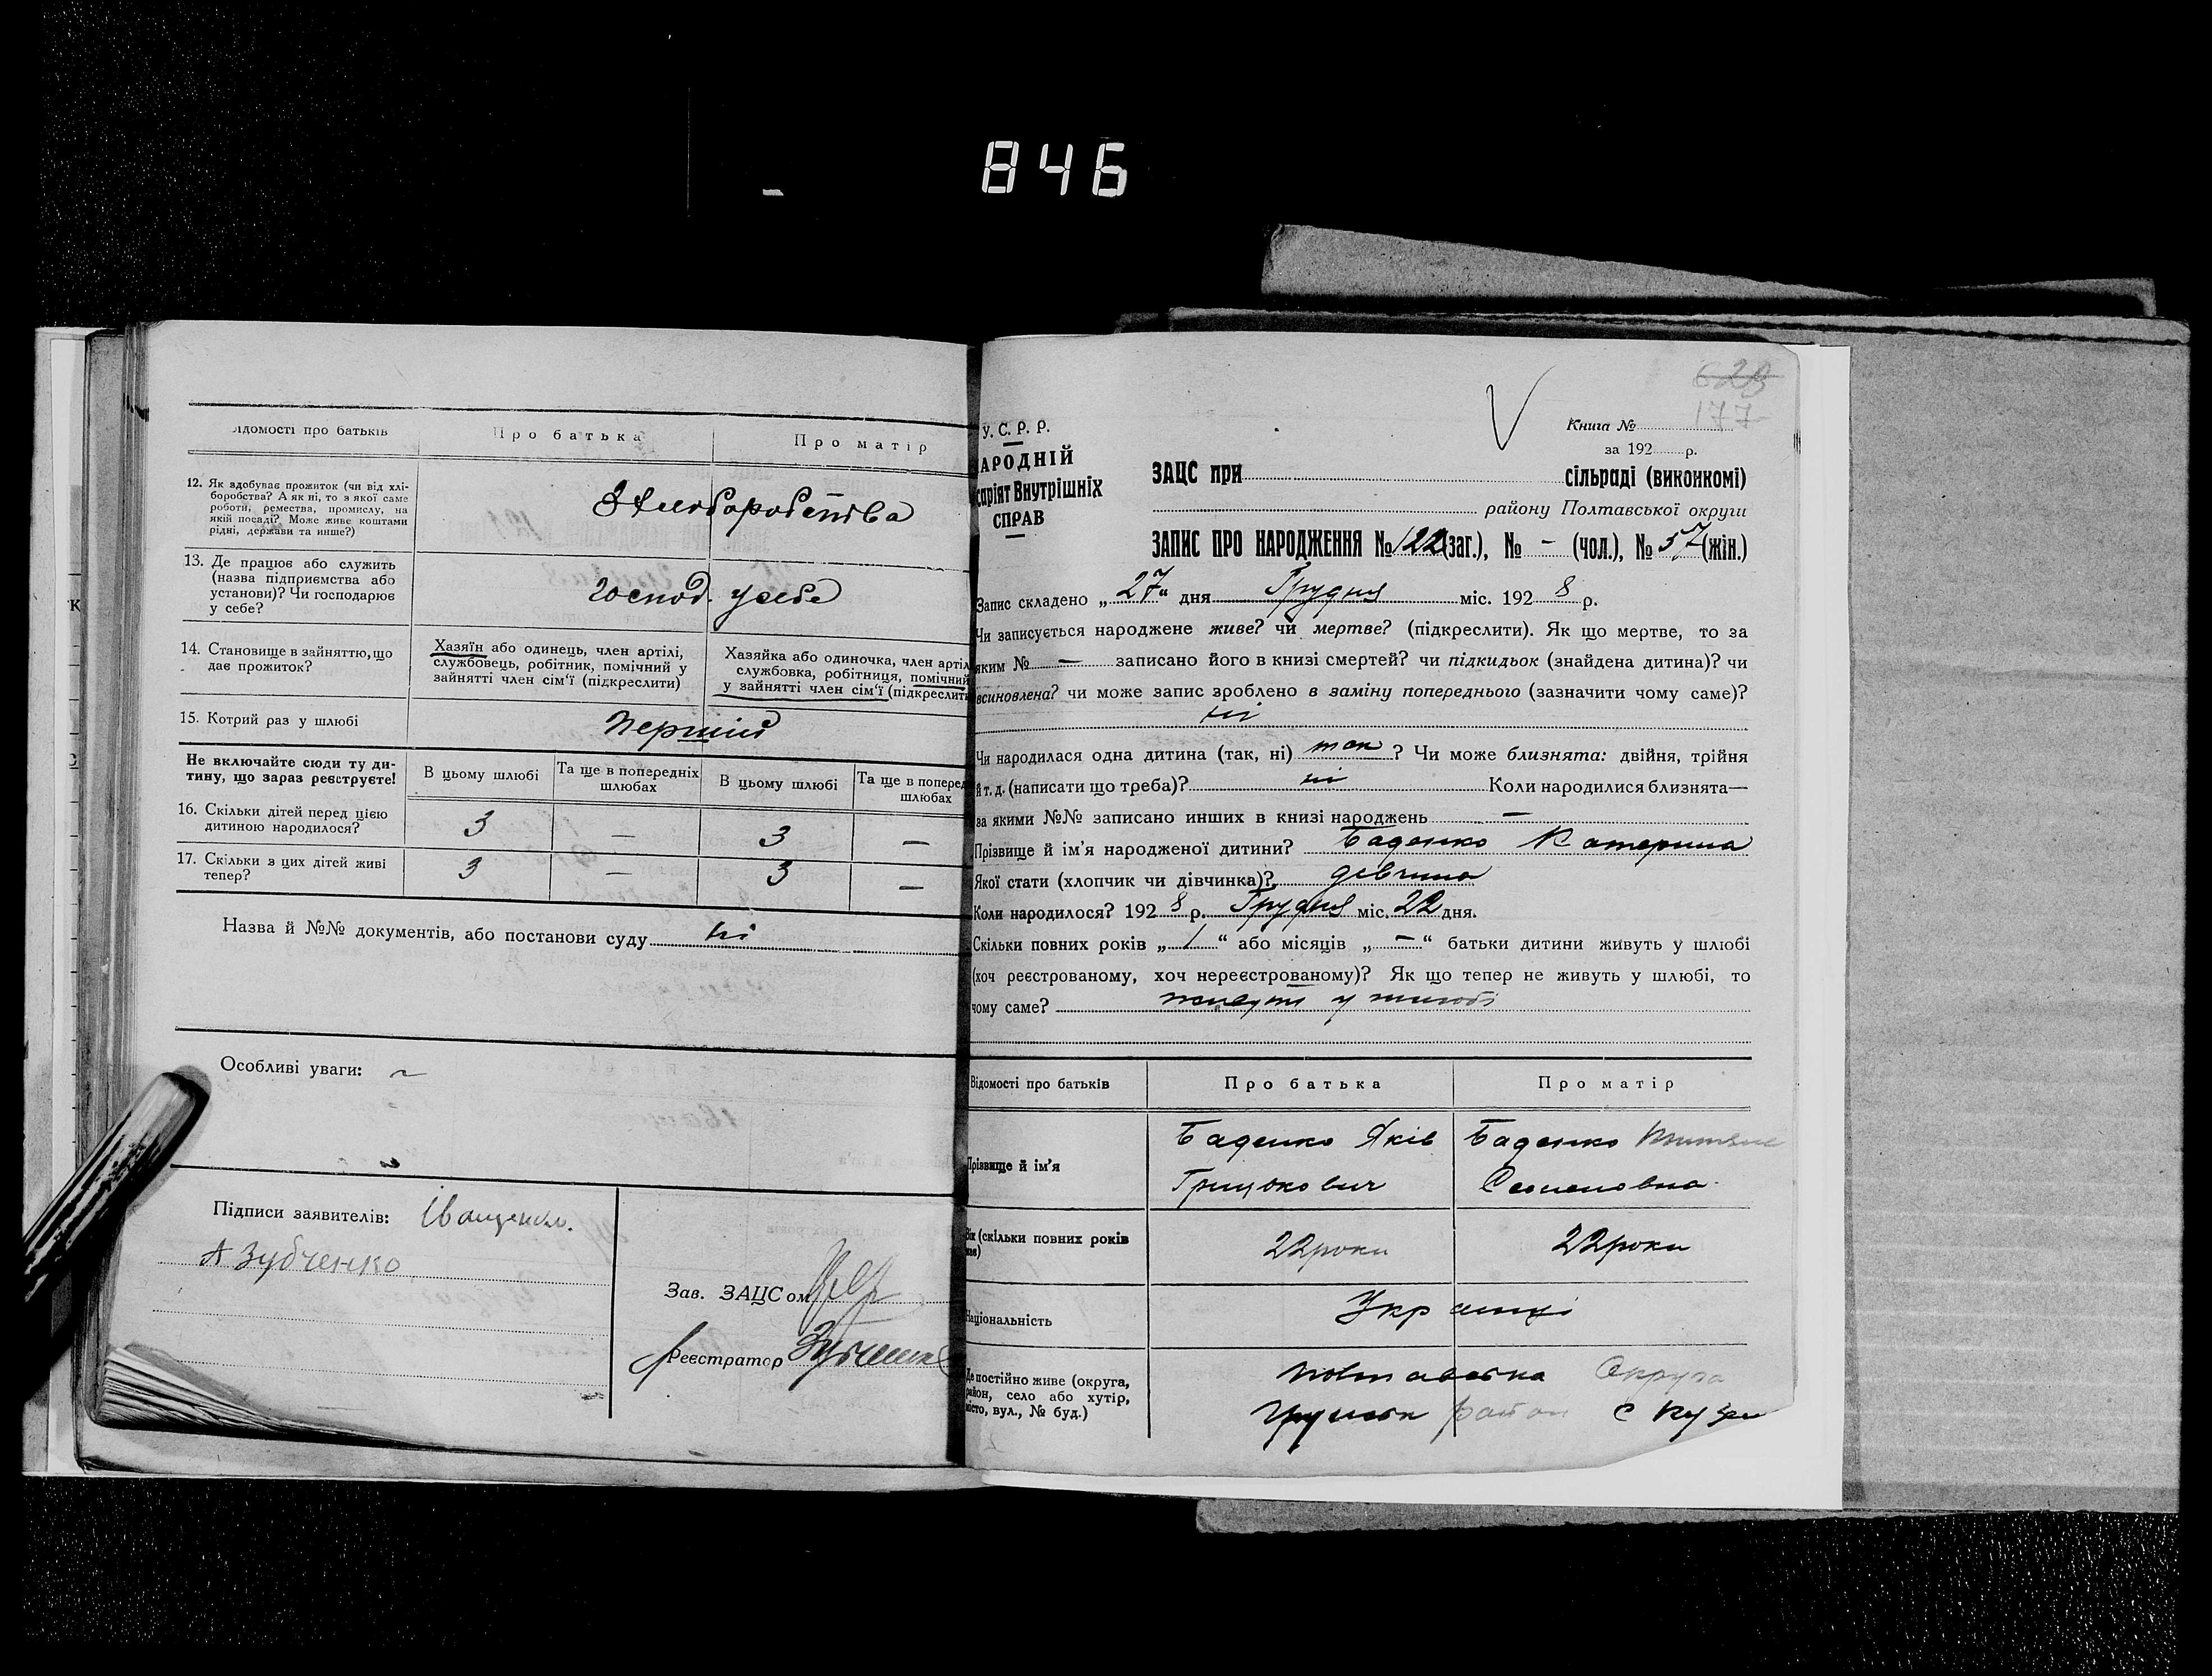 846
ідомості про батьків
Про батька
Про матір
12. Як здобуває прожиток (чи від хлі-
боробства? А як ні, то з якої саме
роботи, ремества, промислу, на
якій посаді? Може живе коштами
рідні, держави та инше?)
З хліборобства
13. Де працює або служить
(назва підприємства або
установи)? Чи господарює
у себе?
господ. у себе
14. Становище в зайняттю, що
дає прожиток?
Хазяїн або одинець, член артілі,
службовець, робітник, помічний у
зайнятті член сім'ї (підкреслити)
Хазяйка або одиночка, член артіл
службовка, робітниця, помічний
у зайнятті член сім'ї (підкреслит
15. Котрий раз у шлюбі
Перший
Не включайте сюди ту ди-
тину, що зараз реєструєте!
В цьому шлюбі
Та ще в попередніх
шлюбах
В цьому шлюбі
Та ще в поперед
шлюбах
16. Скільки дітей перед цією
дитиною народилося?
3 — 3 —
17. Скільки з цих дітей живі
тепер?
3 — 3 —
Назва й №№ документів, або постанови суду ні
Особливі уваги:
Підписи заявителів: Іващенко.
А Зубченко
Зав. ЗАЦСом
Реєстратор Зубченко
623
177
Книга №
за 192 р.
У. С. Р. Р.
АРОДНІЙ
саріят Внутрішніх
СПРАВ
ЗАЦС при сільраді (виконкомі)
району Полтавської округи
ЗАПИС ПРО НАРОДЖЕННЯ № 122 (заг.), № - (чол.), № 57 (жін.)
Запис складено „27“ дня Грудня міс. 1928 р.
Чи записується народжене живе? чи мертве? (підкреслити). Як що мертве, то за
яким № — записано його в книзі смертей? чи підкидьок (знайдена дитина)? чи
всиновлена? чи може запис зроблено в заміну попереднього (зазначити чому саме)?
ні
Чи народилася одна дитина (так, ні) так? Чи може близнята: двійня, трійня
й т. д. (написати що треба)? ні Коли народилися близнята—
за якими №№ записано инших в книзі народжень —
Прізвище й ім'я народженої дитини? Баденко Катерина
Якої стати (хлопчик чи дівчинка)? дівчина
Коли народилося? 1928 р. Грудня міс. 22 дня.
Скільки повних років „1“ або місяців „—“ батьки дитини живуть у шлюбі
(хоч реєстрованому, хоч нереєстрованому)? Як що тепер не живуть у шлюбі, то
чому саме? живуть у шлюбі
Відомості про батьків
Про батька
Про матір
Прізвище й ім'я
Баденко Яків
Баденко
Семеновна
Вік (скільки повних років
має)
22 роки
22 роки
Національність
Українці
Де постійно живе (округа,
район, село або хутір,
місто, вул., № буд.)
Полтавська Округа
район с